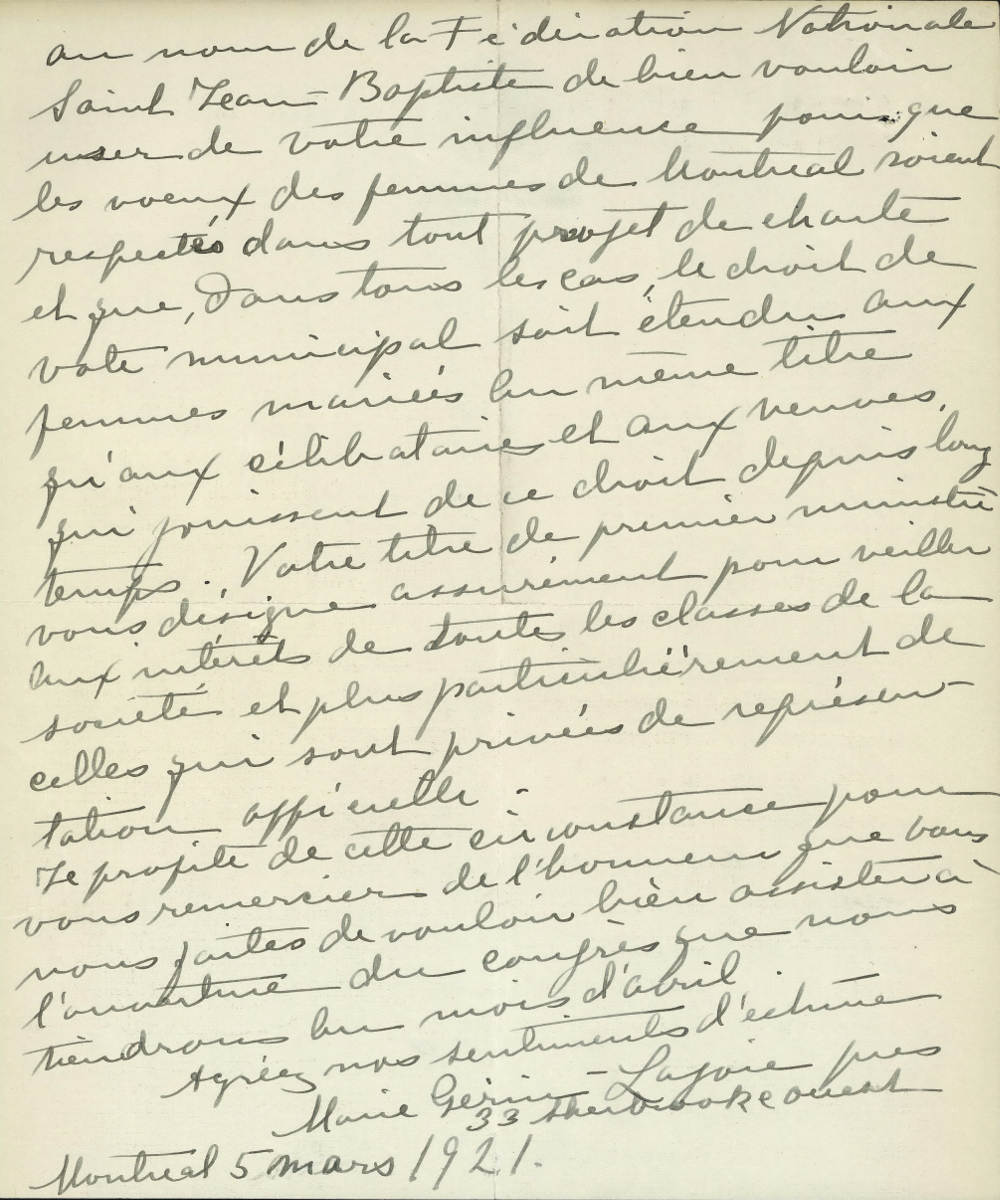 au nom de la Fédération Nationale
Saint Jean-Baptiste de bien vouloir
user de votre influence pour que
les voeux des femmes de Montréal soient
respectés dans tout projet de charte
et que, dans tous les cas, le droit de
vote municipal soit étendu aux
femmes mariées au même titre
qu'aux célibataires et aux veuves,
qui jouissent de ce droit depuis long
temps. Votre titre de premier ministre
vous désigne assurément pour veiller
aux intérêts de toutes les classes de la
société et plus particulièrement de
celles qui sont privées de représen-
tation officielle.
Je profite de cette circonstance pour
vous remercier de l'honneur que vous
nous faites de vouloir bien assister à
l'ouverture du congrès que nous
tiendrons au mois d'avril
Agréez nos sentiments d'estime
Marie Gérin-Lajoie pres
33 Sherbrooke ouest
Montréal 5 mars 1921.